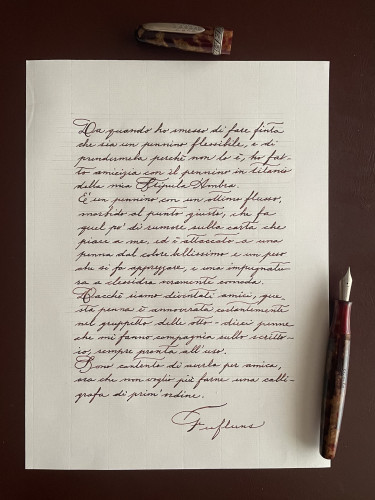 Da quando ho smesso di fare finta
che sia un pennino flessibile, e di
prendermela perché non lo è, ho fat-
to amicizia con il pennino in titanio
della mia Stipula Ambra.
E' un pennino con un ottimo flusso,
morbido al punto giusto, che fa
quel po' di rumore sulla carta che
piace a me, ed è attaccato a una
penna dal colore bellissimo e un peso
che si fa apprezzare, e una impugnatu-
ra a clessidra veramente comoda.
Dacché siamo diventati amici, que-
sta penna è annoverata costantemente
nel gruppetto delle otto-dieci penne
che mi fanno compagnia sullo scritto-
io, sempre pronta all'uso.
Sono contento di averla per amica,
ora che non voglio più farne una calli-
grafa di prim'ordine.
Fufluns